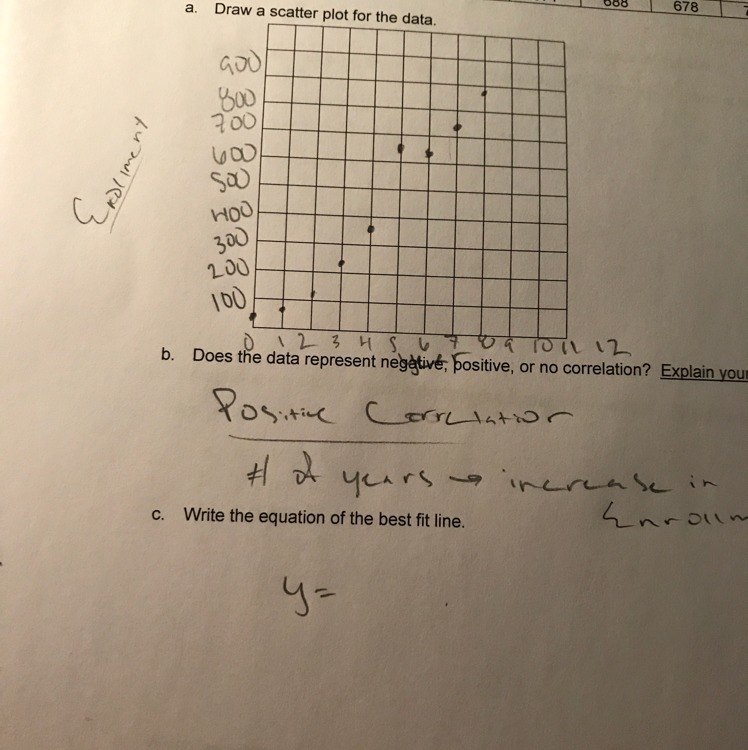 688 678
a. Draw a scatter plot for the data.
900
800
700
600
500
400
300
200
100
Enrolment
0 1 2 3 4 5 6 7 8 9 10 11 12
b. Does the data represent negative, positive, or no correlation? Explain your
Positive Correlation
# of years → increase in
Enrollm
c. Write the equation of the best fit line.
y=